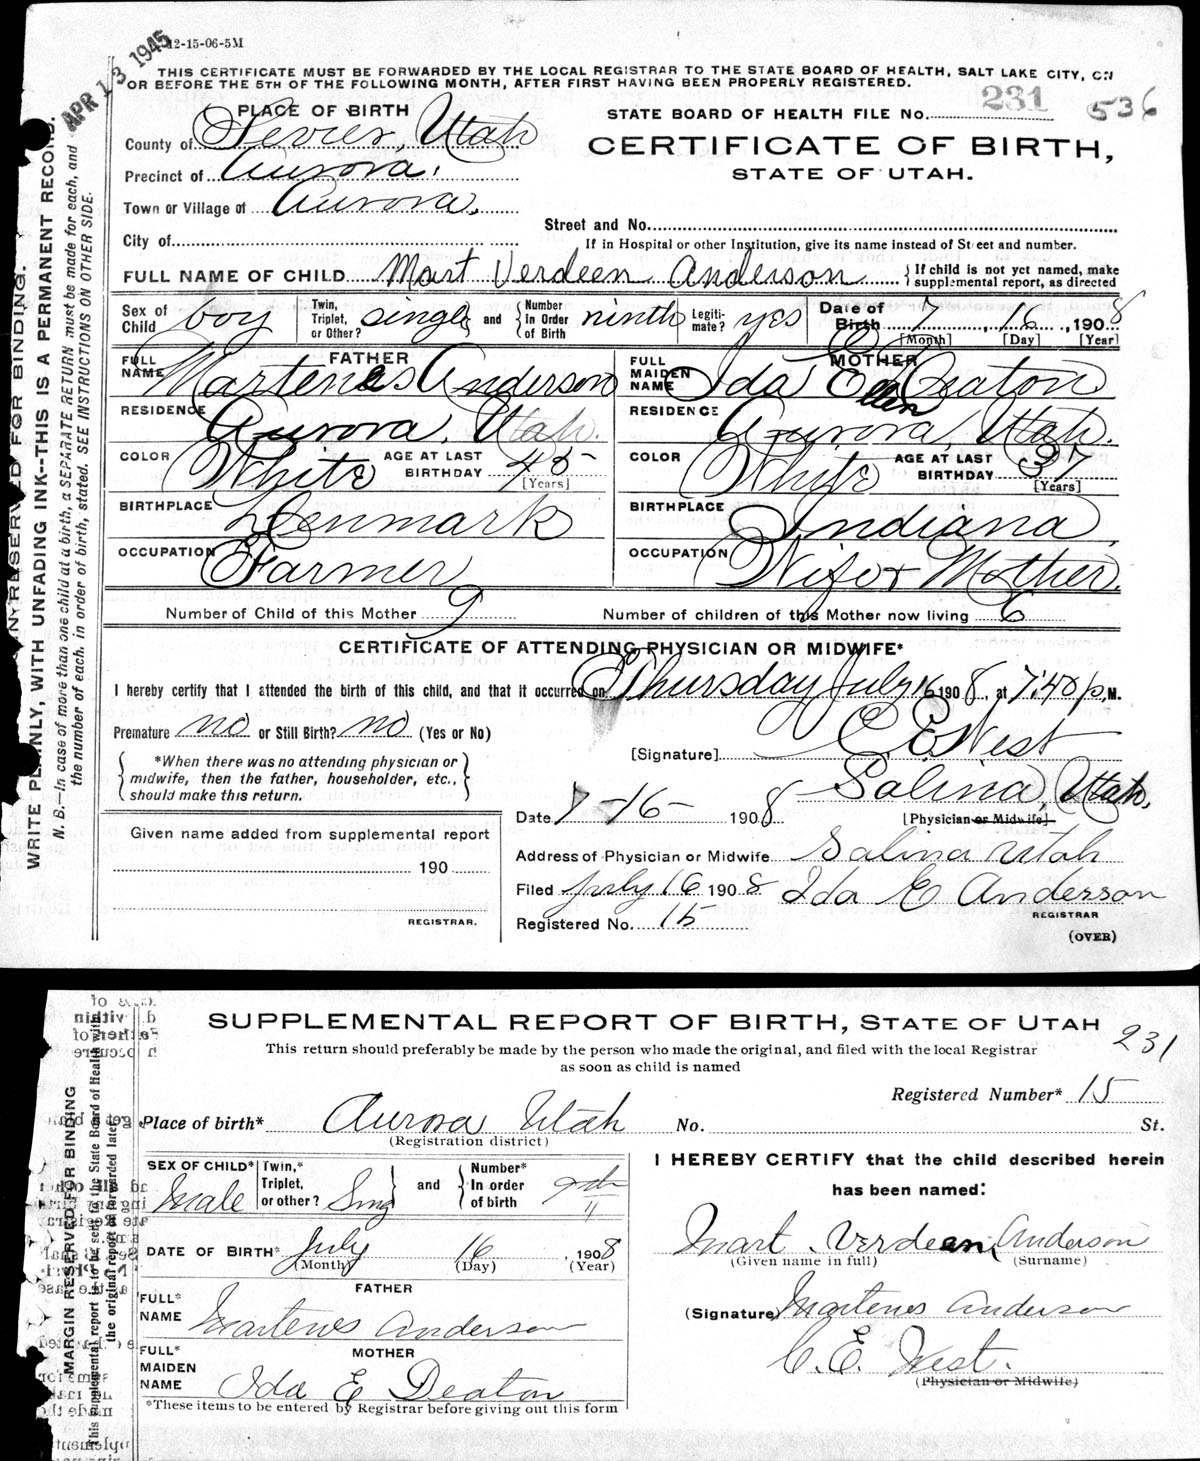 12-15-06-5M
APR 13 1945
THIS CERTIFICATE MUST BE FORWARDED BY THE LOCAL REGISTRAR TO THE STATE BOARD OF HEALTH, SALT LAKE CITY, ON
OR BEFORE THE 5TH OF THE FOLLOWING MONTH, AFTER FIRST HAVING BEEN PROPERLY REGISTERED.
PLACE OF BIRTH
STATE BOARD OF HEALTH FILE No. 231 536
County of Sevier, Utah
CERTIFICATE OF BIRTH,
Precinct of Aurora,
STATE OF UTAH.
Town or Village of Aurora,
Street and No.
City of
If in Hospital or other Institution, give its name instead of Street and number.
FULL NAME OF CHILD Mart Verdeen Anderson { If child is not yet named, make supplemental report, as directed
Sex of Child boy Twin, Triplet, or Other? single and { Number in Order of Birth ninth Legitimate? yes Date of Birth 7, 16, 1908
[Month] [Day] [Year]
FATHER
MOTHER
FULL NAME Martenes Anderson
FULL MAIDEN NAME Ida Ellen Deaton
RESIDENCE Aurora, Utah.
RESIDENCE Aurora, Utah.
COLOR White AGE AT LAST BIRTHDAY 45 [Years]
COLOR White AGE AT LAST BIRTHDAY 37 [Years]
BIRTHPLACE Denmark
BIRTHPLACE Indiana
OCCUPATION Farmer
OCCUPATION Wife & Mother.
Number of Child of this Mother 9
Number of children of this Mother now living 6
CERTIFICATE OF ATTENDING PHYSICIAN OR MIDWIFE*
I hereby certify that I attended the birth of this child, and that it occurred on Thursday July 16 1908, at 7:40 p.M.
Premature no or Still Birth? no (Yes or No)
[Signature] C E West
*When there was no attending physician or midwife, then the father, householder, etc., should make this return.
Salina, Utah.
Date 7-16- 1908
[Physician or Midwife]
Given name added from supplemental report
190
REGISTRAR.
Address of Physician or Midwife Salina Utah
Filed July 16 1908 Ida E Anderson
REGISTRAR
Registered No. 15
(OVER)
IN RESERVED FOR BINDING.
WRITE PLAINLY, WITH UNFADING INK--THIS IS A PERMANENT RECORD.
N. B.—In case of more than one child at a birth, a SEPARATE RETURN must be made for each, and
the number of each, in order of birth, stated. SEE INSTRUCTIONS ON OTHER SIDE.
SUPPLEMENTAL REPORT OF BIRTH, STATE OF UTAH
231
This return should preferably be made by the person who made the original, and filed with the local Registrar
as soon as child is named
Registered Number* 15
Place of birth* Aurora Utah No. St.
(Registration district)
SEX OF CHILD* Male Twin,* Triplet, or other? Sing and { Number* In order of birth 9th
DATE OF BIRTH* July 16, 1908
(Month) (Day) (Year)
FATHER
FULL* NAME Martenes Anderson
MOTHER
FULL* MAIDEN NAME Ida E Deaton
*These items to be entered by Registrar before giving out this form
I HEREBY CERTIFY that the child described herein
has been named:
Mart Verdeen Anderson
(Given name in full) (Surname)
(Signature) Martenes Anderson
C. E. West.
(Physician or Midwife)
MARGIN RESERVED FOR BINDING
This supplemental report is to be sent to the State Board of Health with
the original report or forwarded later